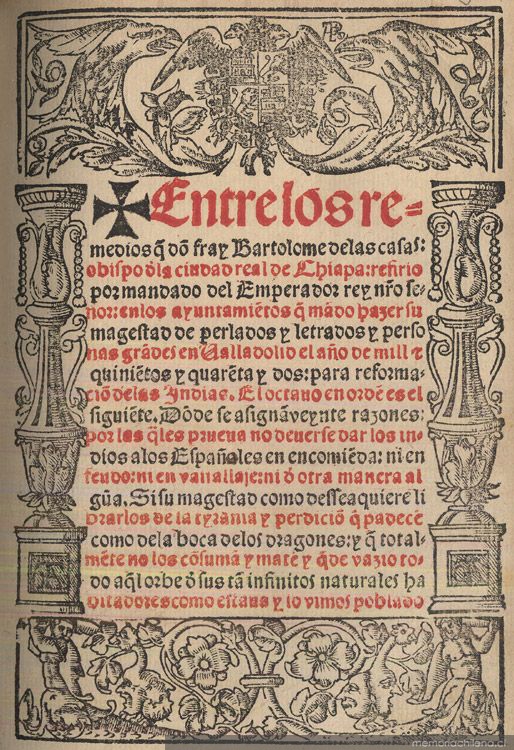 Entre los re=
medios q̃ dõ fray Bartolome delas casas:
obispo d̃la ciudad real de Chiapa: refirio
por mandado del Emperador rey nr̃o se=
ñor: enlos ayuntamiẽtos q̃ mãdo hazer su
magestad de perlados y letrados y perso
nas grãdes en Valladolid el año de mill ⁊
quiniẽtos y quarẽta y dos: para reforma=
ciõ delas Indias. El octauo en ordẽ es el
siguiẽte. Dõde se asignã veynte razones:
por las q̃les prueua no deuerse dar los in=
dios alos Españoles en encomiẽda: ni en
feudo: ni en vassallaje: ni d̃ otra manera al
gũa. Si su magestad como dessea quiere li
brarlos de la tyrania y perdiciõ q̃ padecẽ
como dela boca delos dragones: y q̃ total=
mẽte no los cõsumã y matẽ y q̃de vazio to=
do aq̃l orbe d̃ sus tã infinitos naturales ha
bitadores como estaua y lo vimos poblado
memoriachilena.cl